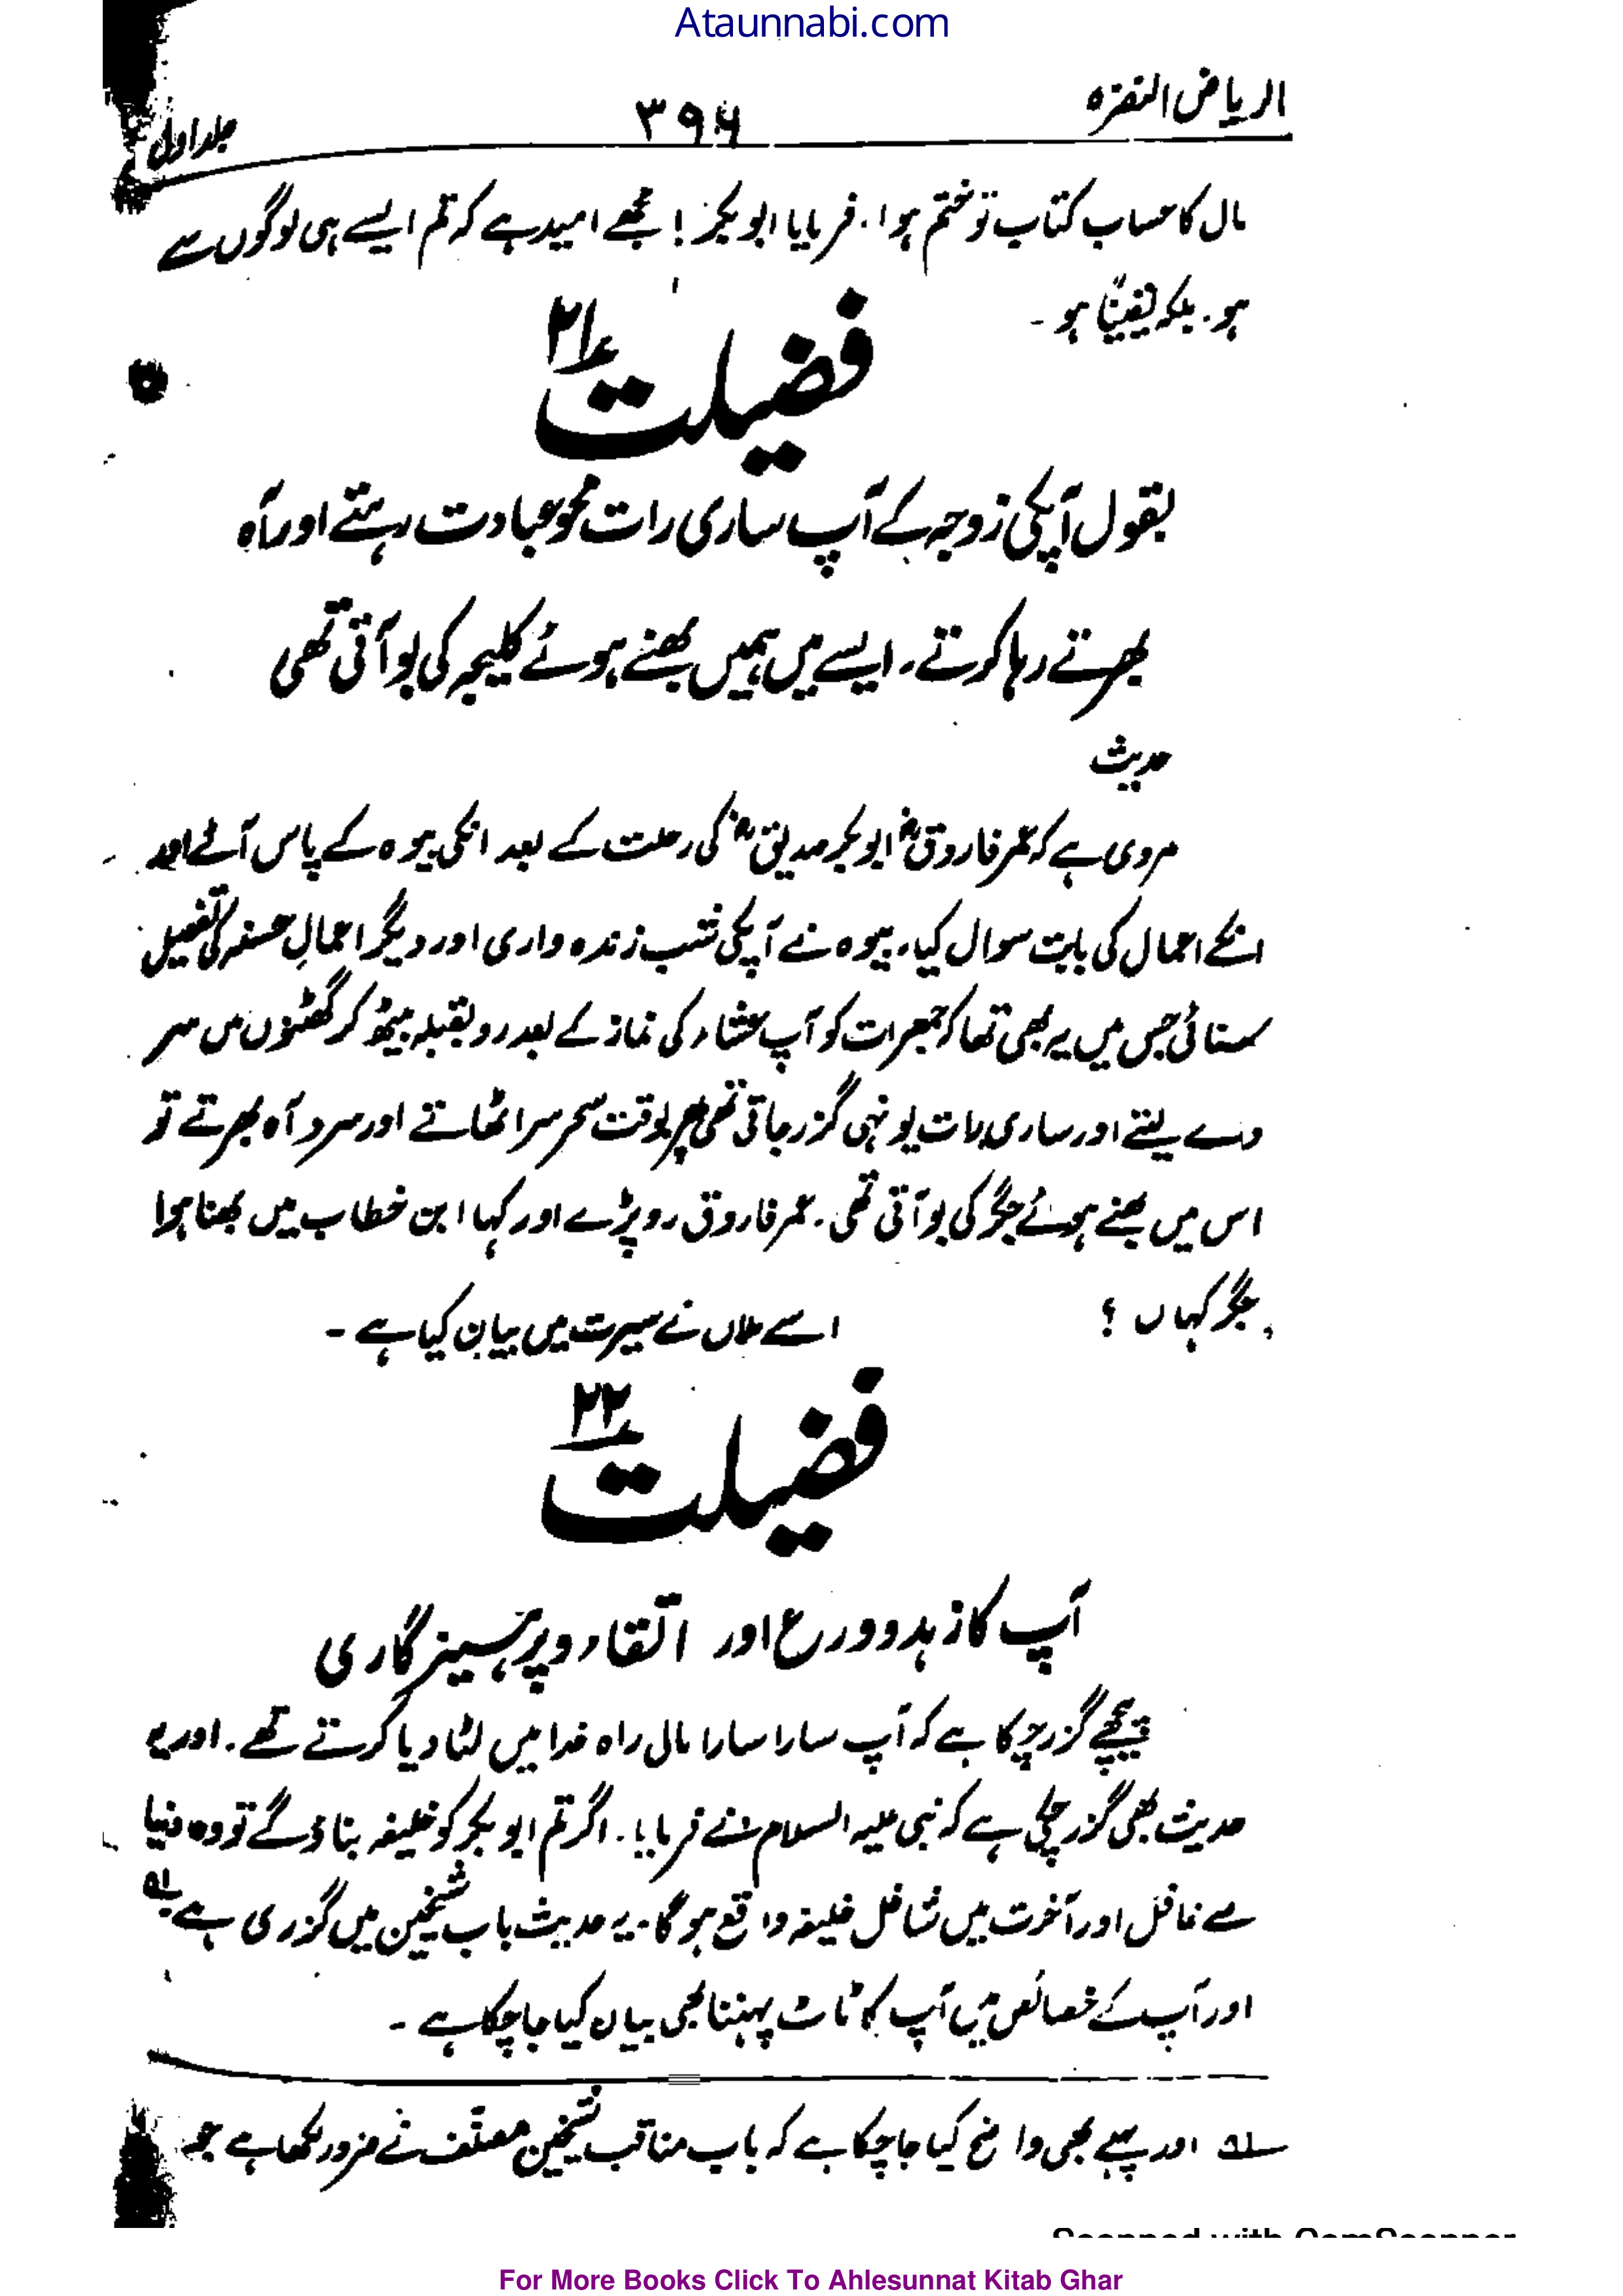 Ataunnabi.com
الریاض النضرہ
۳۹۶
جلد اول
مال کا حساب کتاب تو ختم ہوا۔ فرمایا ابوبکرؓ! مجھے امید ہے کہ تم ایسے ہی لوگوں سے
ہو۔ بلکہ یقیناً ہو۔
فضیلت ۲۱ؔ
بقول آپکی زوجہ کے آپ ساری رات محو عبادت رہتے اور آہ
بھرتے رہا کرتے۔ ایسے میں ہمیں بھنے ہوئے کلیجہ کی بو آتی تھی
حدیث
مروی ہے کہ عمر فاروقؓ ابوبکر صدیقؓ کی رحلت کے بعد انکی بیوہ کے پاس آئے اور
انکے اعمال کی بابت سوال کیا۔ بیوہ نے آپکی شب زندہ داری اور دیگر اعمالِ حسنہ کی تفصیل
سنائی جس میں یہ بھی تھا کہ جمعرات کو آپ عشاء کی نماز کے بعد رو بقبلہ بیٹھ کر گھٹنوں میں سر
دے لیتے اور ساری رات یونہی گزر جاتی تھی پھر بوقت سحر سر اٹھاتے اور سرد آہ بھرتے تو
اس میں بھنے ہوئے جگر کی بو آتی تھی۔ عمر فاروق رو پڑے اور کہا ابن خطاب میں بھنا ہوا
جگر کہاں ؟
اسے ملاں نے سیرت میں بیان کیا ہے۔
فضیلت ۲۲
آپ کا زہد و ورع اور اتقاء و پرہیزگاری
پیچھے گزر چکا ہے کہ آپ سارا سارا مال راہ خدا میں لٹا دیا کرتے تھے۔ اور یہ
حدیث بھی گزر چکی ہے کہ نبی علیہ السلام نے فرمایا۔ اگر تم ابوبکر کو خلیفہ بناؤ گے تو وہ دنیا
سے غافل اور آخرت میں شاغل خلیفہ واقع ہوگا۔ یہ حدیث باب شیخین میں گزری ہے ؎۱
اور آپ کے خصائص میں آپ کا ٹاٹ پہننا بھی بیان کیا جا چکا ہے۔
؎۱ اور پہلے بھی واضح کیا جا چکا ہے کہ باب مناقب شیخین مصنّف نے ضرور لکھا ہے جو
For More Books Click To Ahlesunnat Kitab Ghar